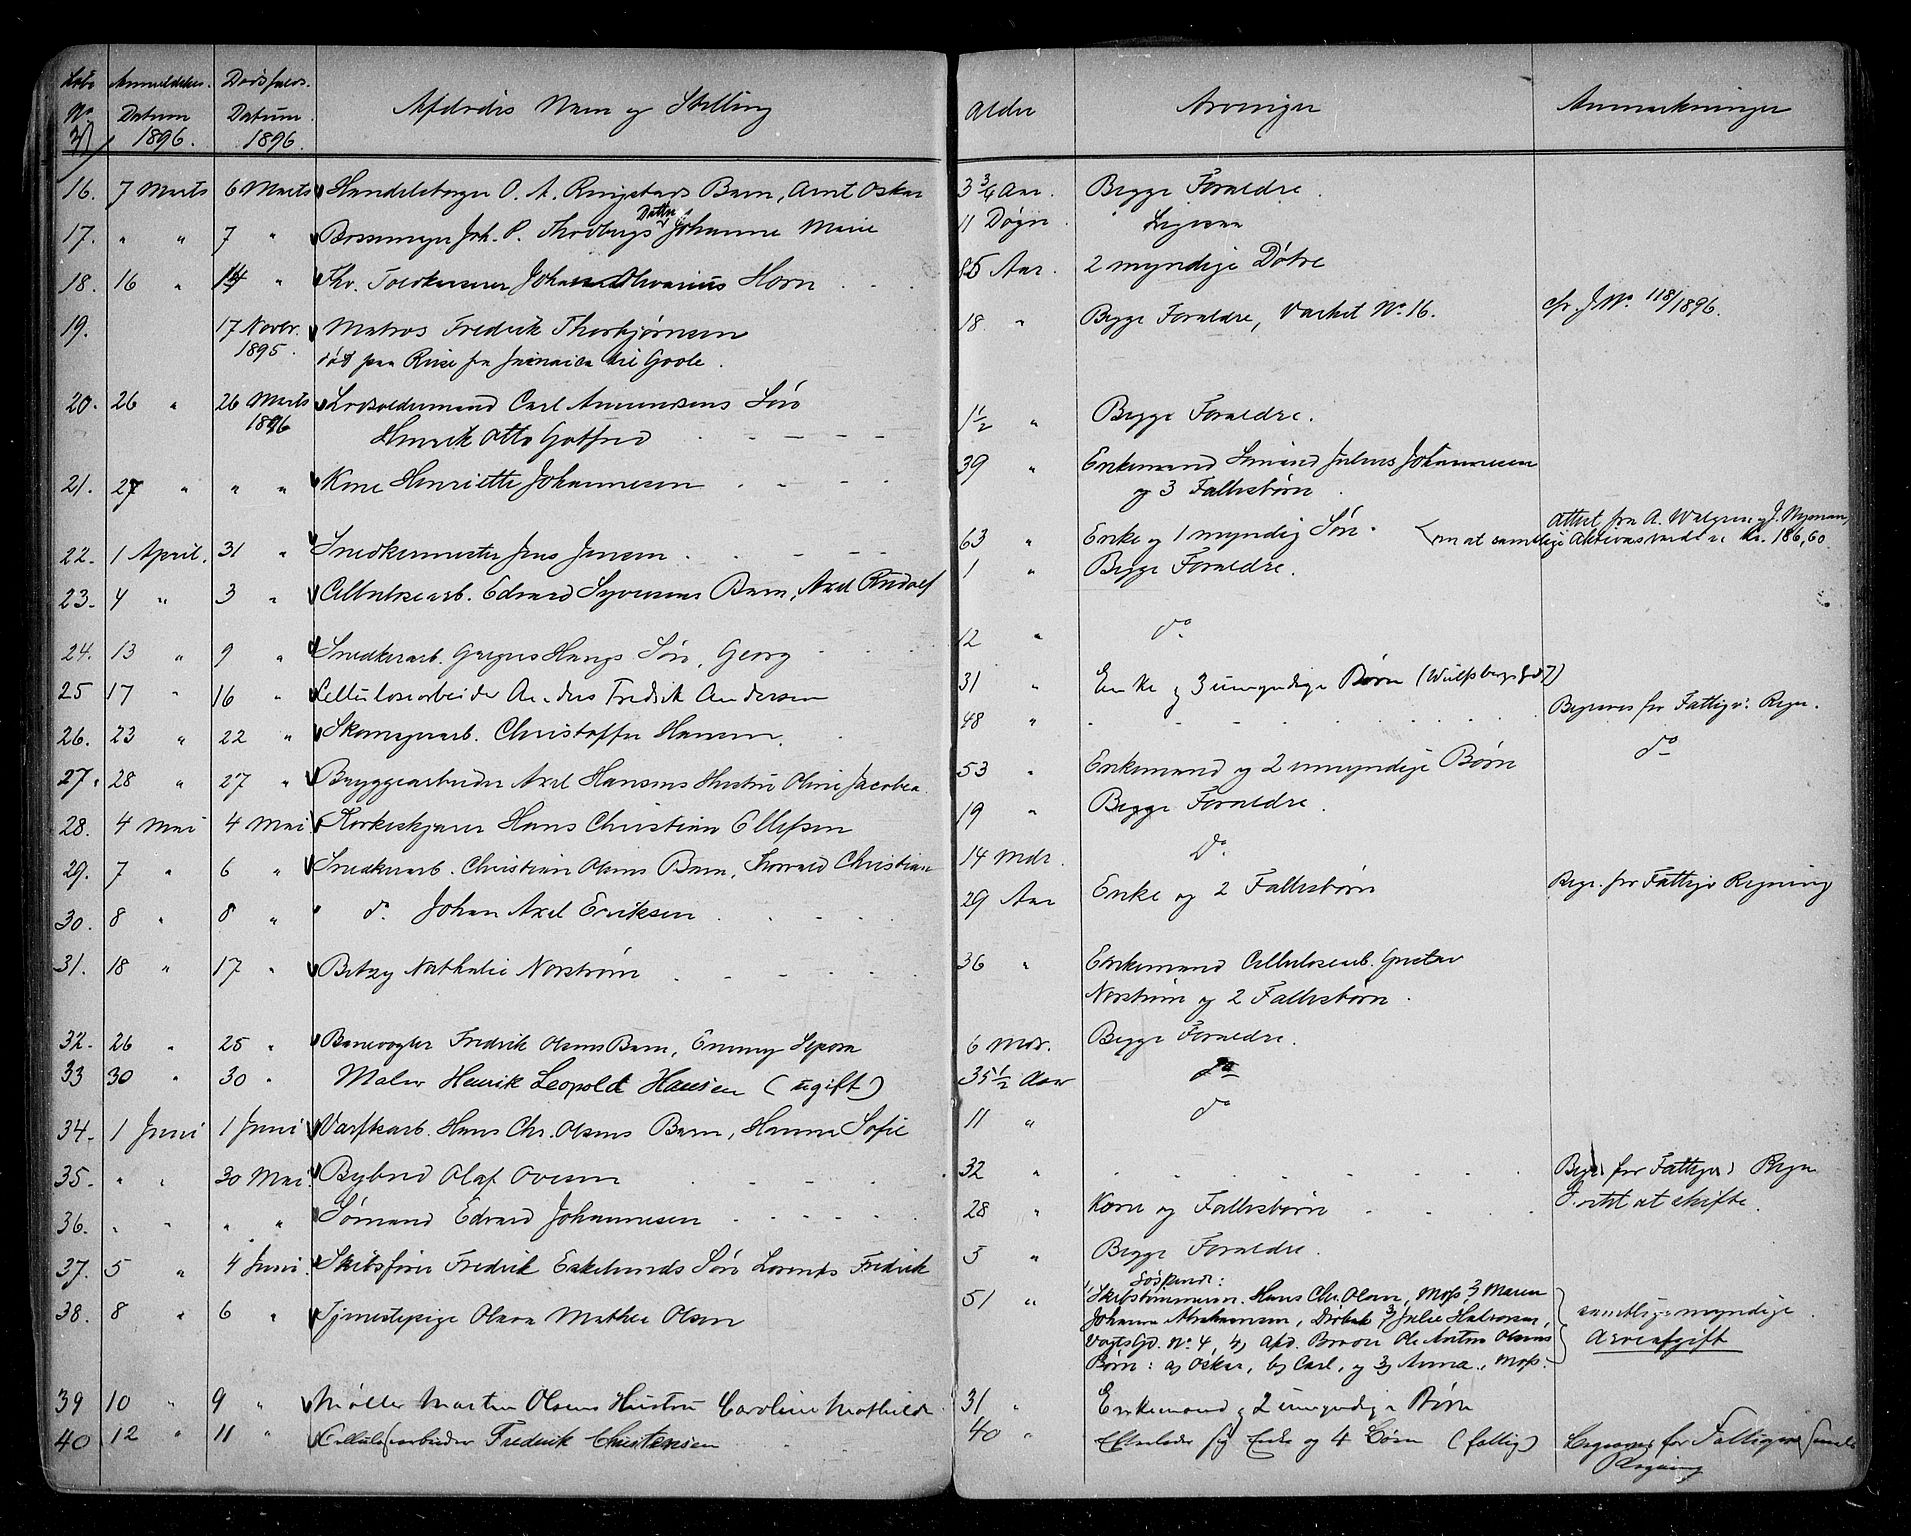 Løbe No Anmeldelses Datum 1896. Dødsfalds Datum 1896. Afdødes Navn og Stilling Alder Arvinger Anmærkninger
16. 7 Marts 6 Marts Handelsborger O. A. Ringstads Barn, Arnt Oskar 3 3/4 Aar. Begge Forældre.
17. " " 7 " Bøssemager Joh. P. Thorbergs Datter Johanne Marie 11 Døgn Ligesaa
18. 16 " 14 " Fhv. Toldkasserer Johan Horn 85 Aar. 2 myndige Døtre
19. 17 Novbr. 1895. Matros Fredrik Thorbjørnsen 18 " Begge Forældre, Værket No. 16. cfr. J. No. 118/1896.
død paa Reise fra Jamaica til Goole.
20. 26 " 26 Marts 1896 Lodsoldermand Carl Amundsens Søn 1 1/2 " Begge Forældre.
Henrik Otto Gotfred
21. 27 " " " Kone Henriette Johannesen 39 " Enkemand Sømand Julius Johannesen
og 3 Fællesbørn.
22. 1 April. 31 " Snedkermester Jens Jensen 63 " Enke og 1 myndig Søn. Attest fra A. Walgren og J. Nyman,
om at samtlige Aktivas værdi er Kr. 186,60
23. 4 " 3 " Cellulosearb. Edvard Syversens Barn, Axel Rudolf 1 " Begge Forældre.
24. 13 " 9 " Snedkerarb. Gregers Haugs Søn, Georg 12 " do
25 17 " 16 " Cellulosearbeider Anders Fredrik Andersen 31 " Enke og 3 umyndige Børn (Wulfsbergsgd 7)
26. 23 " 22 " Skomagerarb. Christoffer Hansen. 48 " Begraves for Fattigv. Regn.
27. 28 " 27 " Bryggearbeider Axel Hansens Hustru Oline Jacobea. 53 " Enkemand og 2 umyndige Børn do
28. 4 Mai 4 Mai Korkeskjærer Hans Christian Ellefsen 19 " Begge Forældre.
29. 7 " 6 " Snedkerarb. Christian Olsens Barn, Thorvald Christian 14 Mdr. Do.
30. 8 " 8 " " do. Johan Axel Eriksen 29 Aar Enke og 2 Fællesbørn Begr. for Fattigv Regning
31. 18 " 17 " Betzy Nathalie Norstrøm 36 " Enkemand Cellulosearb. Gustav
Norstrøm og 2 Fællesbørn.
32. 26 " 25 " Banevogter Fredrik Olsens Barn, Emmy 6 Mdr. Begge Forældre.
33 30 " 30 " Maler Henrik Leopold Hansen (ugift) 35 1/2 Aar do
34. 1 Juni 1 Juni Værftsarb. Hans Chr. Olsens Barn, Hanna Sofie 11 " do
35. " " 30 Mai Bybud Olaf Ovesen 32 " Begr. for Fattigv. Regn
36. " " " " Sømand Edvard Johannesen 28 " Kone og Fællesbørn Intet at skifte.
37. 5 " 4 Juni. Skibsfører Fredrik Eskelunds Søn Lorentz Fredrik 5 " Begge Forældre.
38. 8 " 6 " Tjenestepige Olava Mathea Olsen 51 " Søskende:
1 Skibstømmerm. Hans Chr. Olsen, Moss 2) Maren
Johanna Abrahamsen, Drøbak 3) Julie Halvorsen, samtlige myndige
Vogtsgd. No. 4, 4) afd. Broder Ole Anton Olsens Arveafgift
Børn: a) Oskar, b) Carl, og 3) Anna, Moss.
39 10 " 9 " Møller Martin Olsens Hustru Caroline Mathilde 31 " Enkemand og 2 umyndige Børn
40 12 " 11 " Cellulosearbeider Fredrik Christensen 40 " Efterlader sig Enke og 4 Børn (fattig) Begraves for Fattigvæsenets
Regning